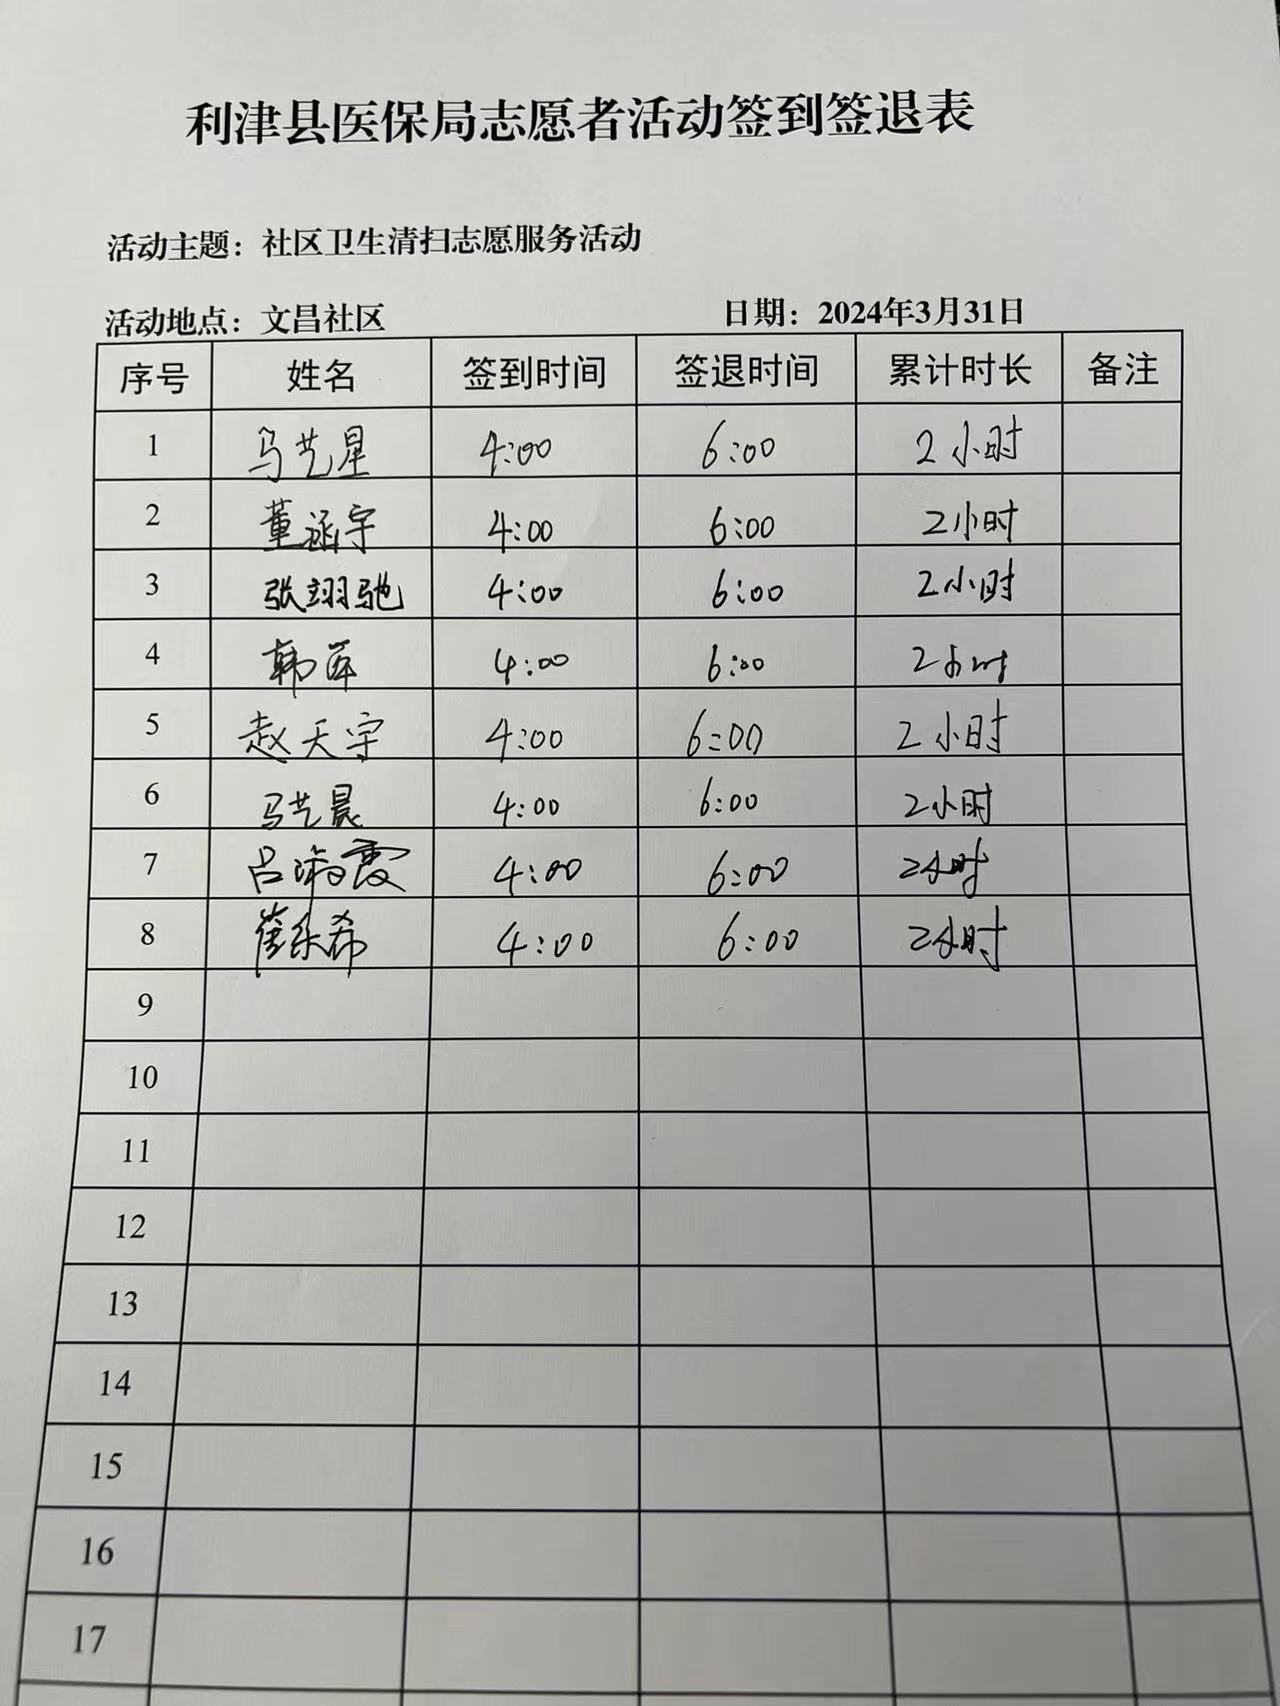 利津县医保局志愿者活动签到签退表
活动主题：社区卫生清扫志愿服务活动
活动地点：文昌社区 日期：2024年3月31日
序号 姓名 签到时间 签退时间 累计时长 备注
1 马艺星 4:00 6:00 2小时
2 董涵宇 4:00 6:00 2小时
3 张翊驰 4:00 6:00 2小时
4 韩 4:00 6:00 2小时
5 赵天宇 4:00 6:00 2小时
6 马艺晨 4:00 6:00 2小时
7 吕海霞 4:00 6:00 2小时
8 崔乐希 4:00 6:00 2小时
9
10
11
12
13
14
15
16
17